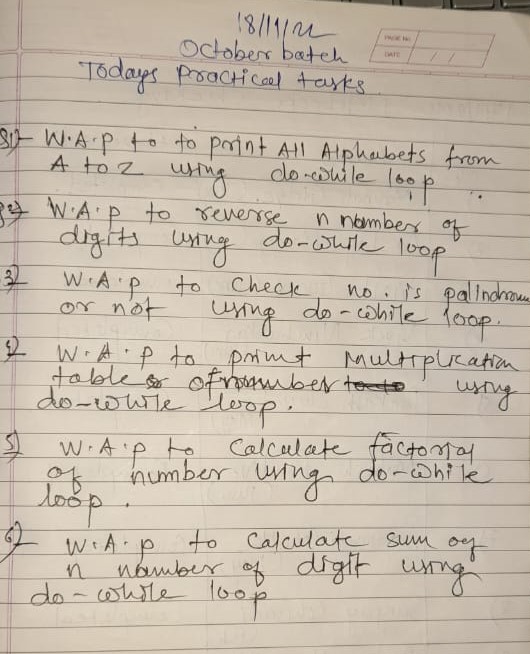 18/11/22
October batch
PAGE NO.
DATE
Todays practical tasks
W.A.P to to print All Alphabets from
A to Z using do-while loop
W.A.P to reverse n nomber of
digits using do-while loop
3) W.A.P to check no. is palindrome
or not using do-while loop.
W.A.P to print Multiplication
table of number using
do-while loop.
5) W.A.P to Calculate factorial
of number using do-while
loop.
6) W.A.P to Calculate sum of
n number of digit using
do-while loop